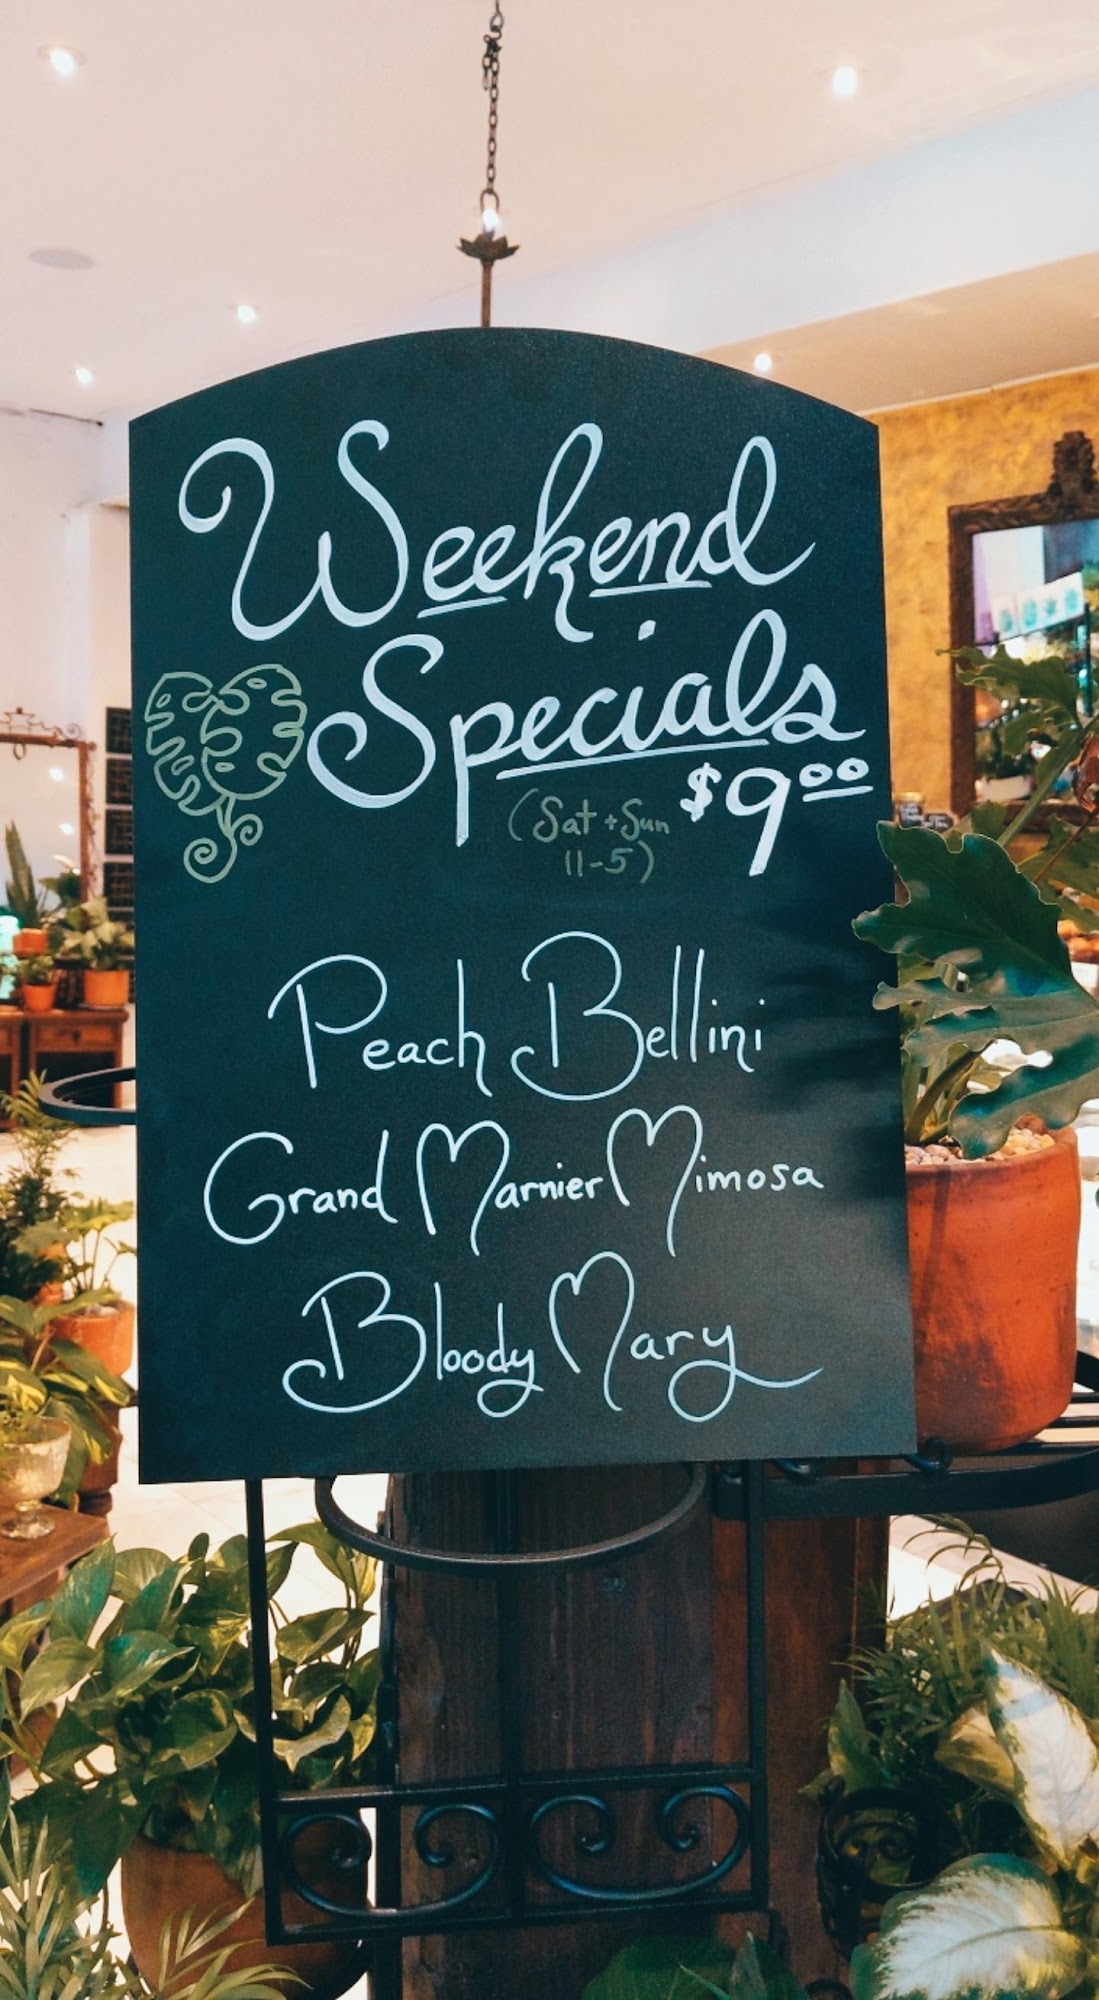 Weekend
Specials
$9.00
(Sat + Sun
11-5)
Peach Bellini
Grand Marnier Mimosa
Bloody Mary